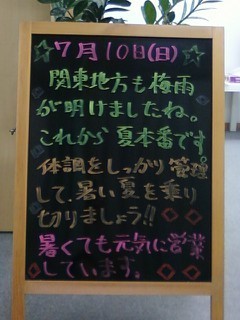 7月10日(日)
関東地方も梅雨
が明けましたね。
これから夏本番です。
体調をしっかり管理
して、暑い夏を乗り
切りましょう!!
暑くても元気に営業
しています。